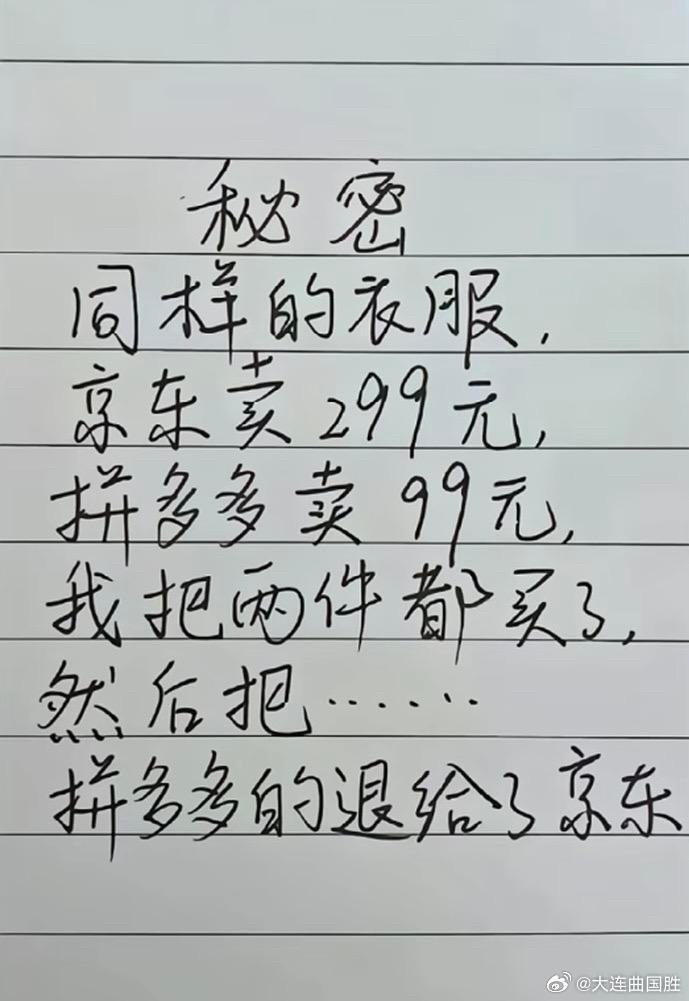 秘密
同样的衣服,
京东卖299元,
拼多多卖99元,
我把两件都买了,
然后把……
拼多多的退给了京东
@大连曲国胜